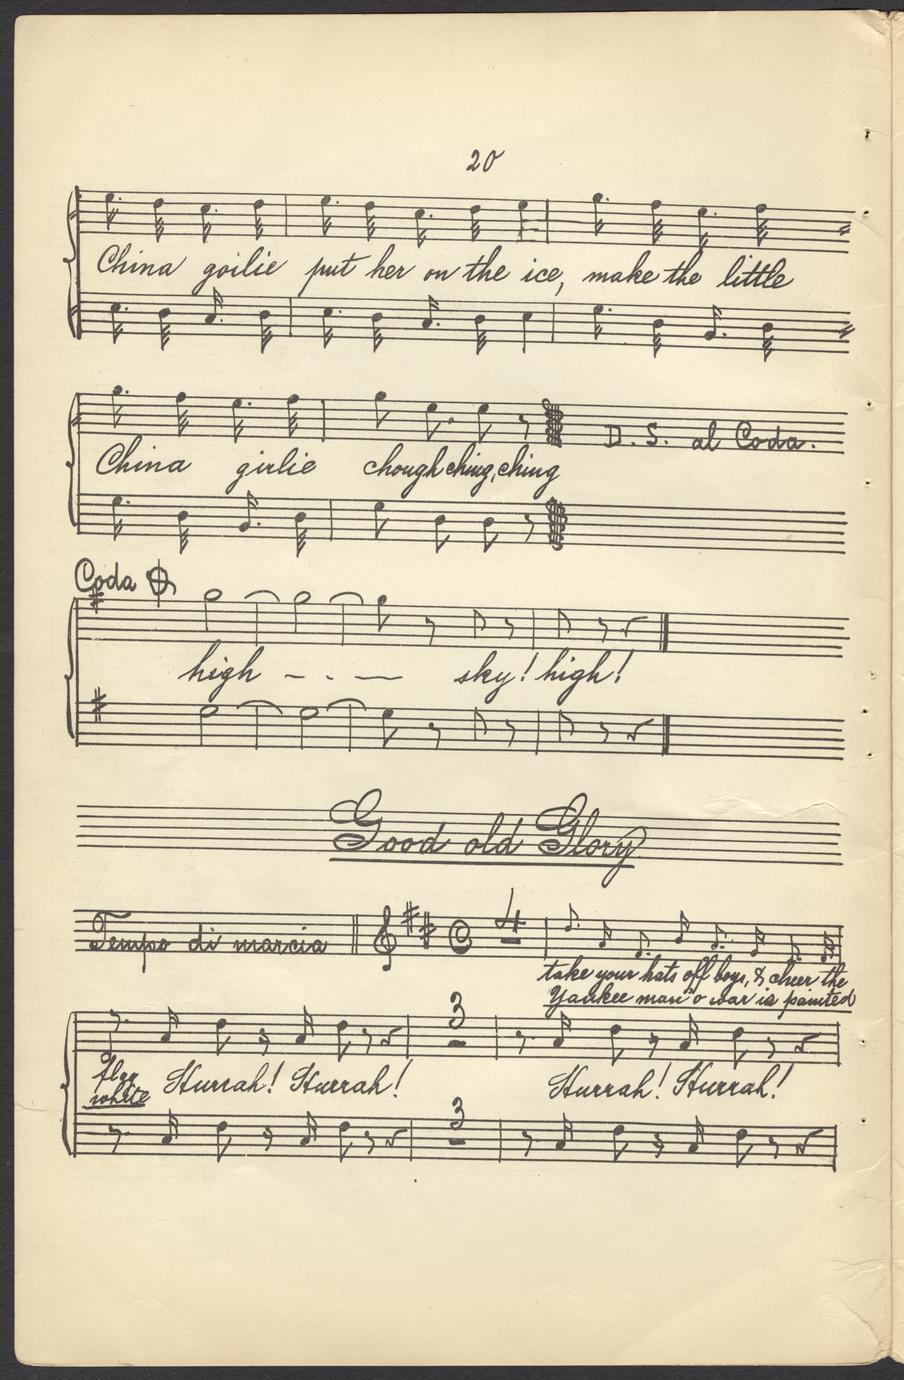 20
China goilie put her on the ice, make the little
China girlie chough ching, ching
D. S. al Coda.
Coda
high - - - sky! high!
Good old Glory
Tempo di marcia
4
take your hats off boys, & cheer the
Yankee man o war is painted
3
flag
white
Hurrah! Hurrah! Hurrah! Hurrah!
3